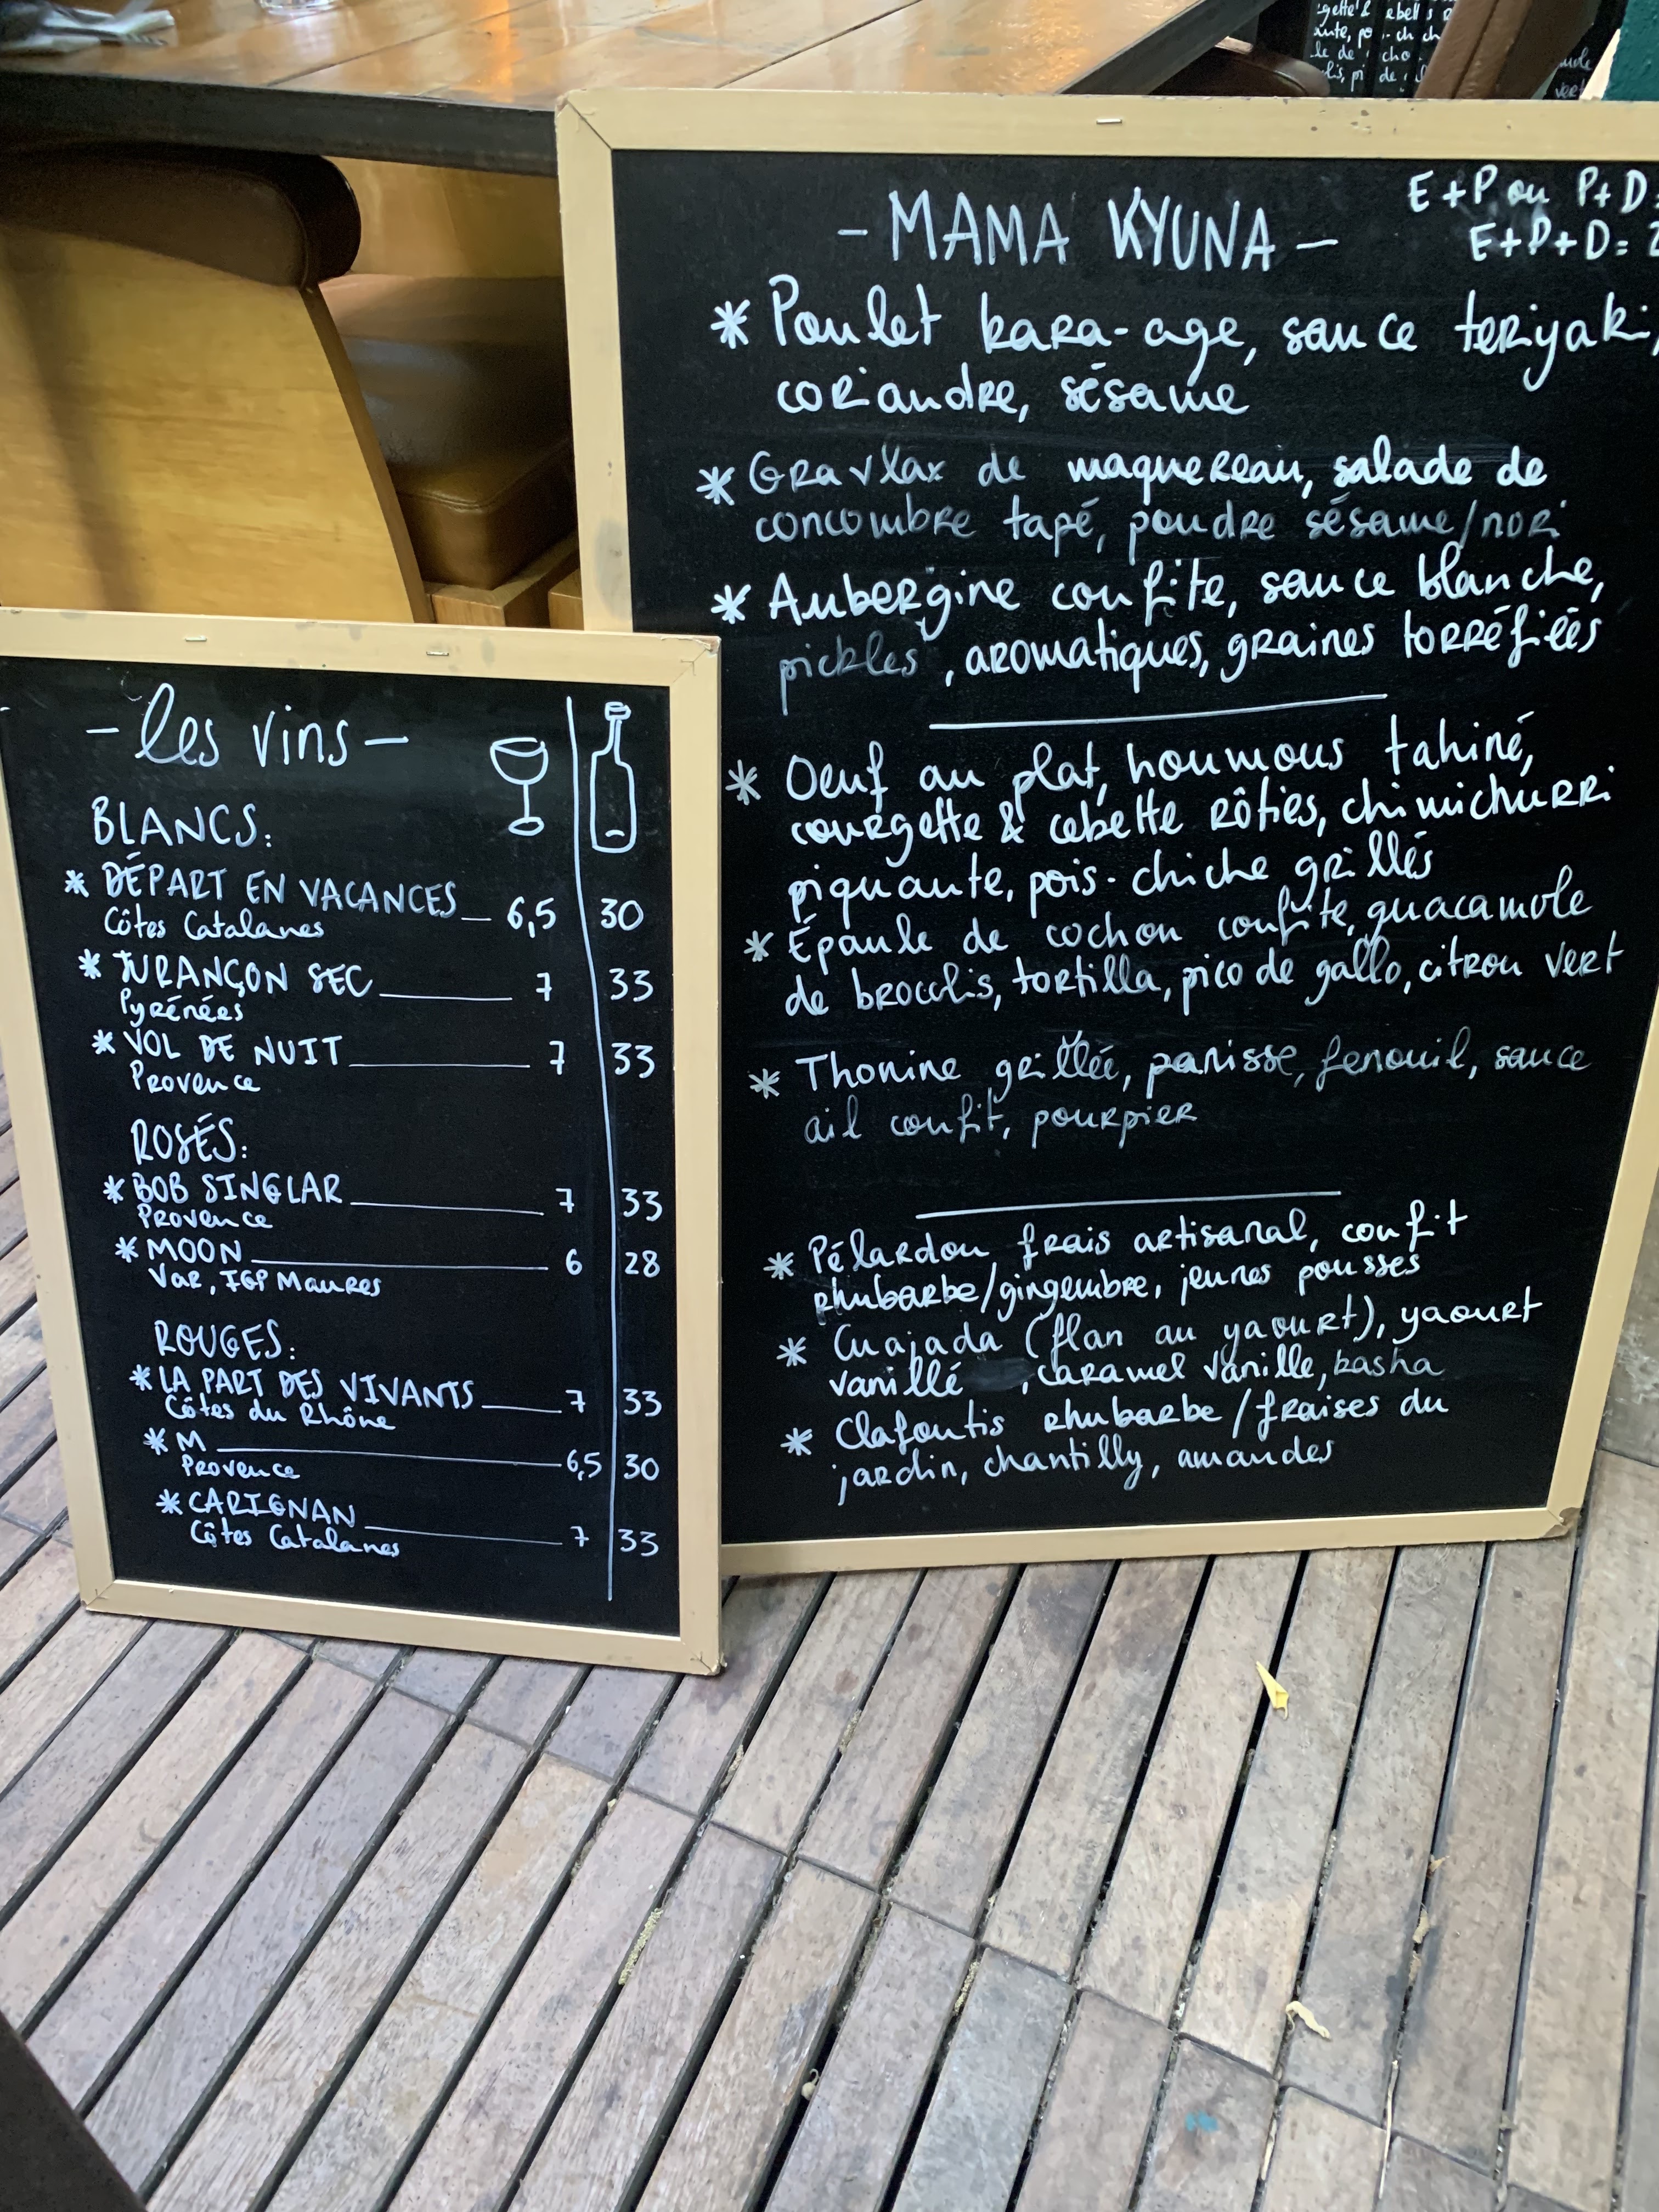 - les vins -
BLANCS:
* DÉPART EN VACANCES 6,5 30
Côtes Catalanes
* JURANÇON SEC 7 33
Pyrénées
* VOL DE NUIT 7 33
Provence
ROSÉS:
* BOB SINGLAR 7 33
Provence
* MOON 6 28
Var, IGP Maures
ROUGES:
* LA PART DES VIVANTS 7 33
Côtes du Rhône
* M 6,5 30
Provence
* CARIGNAN 7 33
Côtes Catalanes
- MAMA KYUNA -
E+P ou P+D
E+P+D=
* Poulet kara-age, sauce teriyaki,
coriandre, sésame
* Gravlax de maquereau, salade de
concombre tapé, poudre sésame/nori
* Aubergine confite, sauce blanche,
pickles, aromatiques, graines torréfiées
* Oeuf au plat, houmous tahiné,
courgette & cebette rôties, chimichurri
piquante, pois-chiche grillés
* Épaule de cochon confite, guacamole
de brocolis, tortilla, pico de gallo, citron vert
* Thonine grillée, panisse, fenouil, sauce
ail confit, pourpier
* Pélardon frais artisanal, confit
rhubarbe/gingembre, jeunes pousses
* Cuajada (flan au yaourt), yaourt
vanillé, caramel vanille, kasha
* Clafoutis rhubarbe/fraises du
jardin, chantilly, amandes